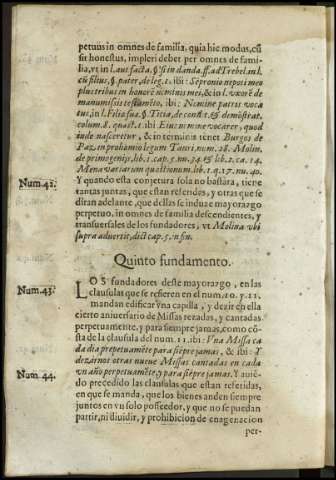 petuus in omnes de familia, quia hic modus, cũ
sit honestus, impleri debet per omnes de fami-
lia, vt in l. aut facta, § si in danda, ff. ad Trebel. in l.
cũ filius, §. pater, de leg. 2. ibi: Sepronio nepoti meo
plus tribus in honorē nominis mei, & in l. vxorē de
manumissis testamēto, ibi: Nomine patris voca-
tus, in l. Filio sua, §. Titia, de condit. & demõstrat.
colum. 8. quæst. 1. ibi Eius nomine vocarer, quod
inde nascretur, & in terminis tenet Burgos de
Paz, in prohœmio legum Tauri, num. 28. Molin.
de primogenijs, lib. 1. cap. 5. nu. 34. & lib. 2. ca. 14.
Mena variarum quæstionum lib. 1. q. 17. nu. 40.
Num. 42. Y quando esta conjetura sola no bastàra, tiene
tantas juntas, que estan referidas, y otras que se
diran adelante, que dellas se induze mayorazgo
perpetuo, in omnes de familia descendientes, y
transuersales de los fundadores, vt Molina vbi
supra aduertit, dict. cap. 5. in fin.
Quinto fundamento.
Num. 43. LOS fundadores deste mayorazgo, en las
clausulas que se refieren en el num. 10. y 11.
mandan edificar vna capilla, y dezir en ella
cierto aniuersario de Missas rezadas, y cantadas
perpetuamente, y para siempre jamas, como cõ-
sta de la clausula del num. 11. ibi: Vna Missa ca
da dia perpetuamẽte para siẽpre jamas, & ibi: Y
dezirme otras nueue Missas cantadas en cada
vn año perpetuamẽte, y para siẽpre jamas. Y auiẽ-
Num. 44. do precedido las clausulas que estan referidas,
en que se manda, que los bienes anden siempre
juntos en vn solo posseedor, y que no se puedan
partir, ni diuidir, y prohibicion de enagenacion
per-